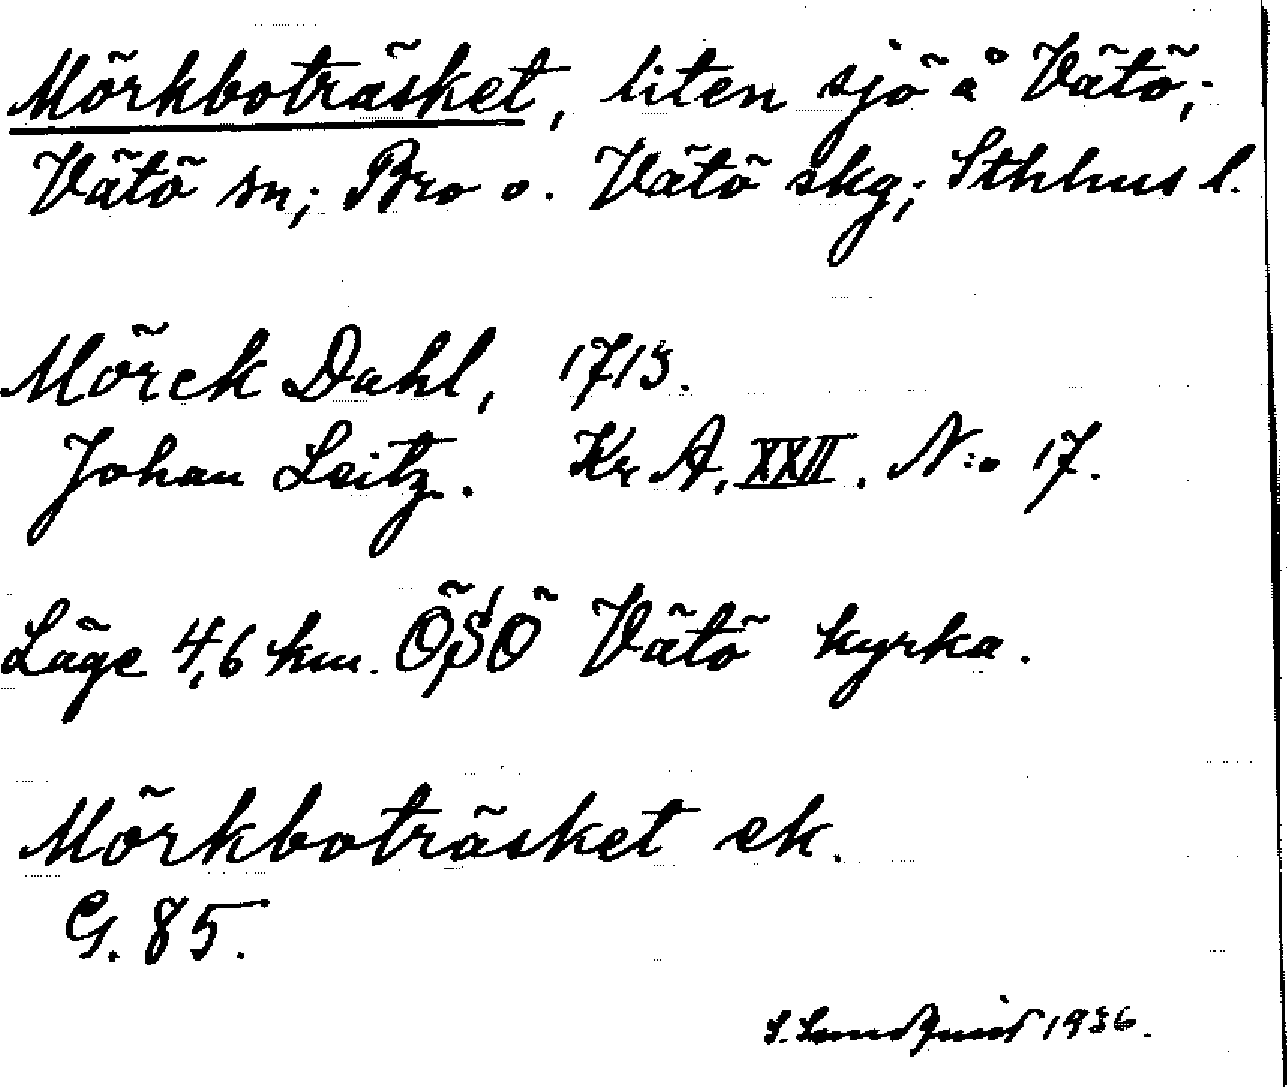 Mörkboträsket, liten sjö å Vätö;
Vätö sn; Bro o. Vätö skg; Sthlms l.
Mörck Dahl, 1715.
Johan Leitz. Kr A. XXII. N:o 17.
Läge 4,6 km. ÖSÖ Vätö kyrka.
Mörkboträsket ek.
G. 85.
S. Lundquist 1936.